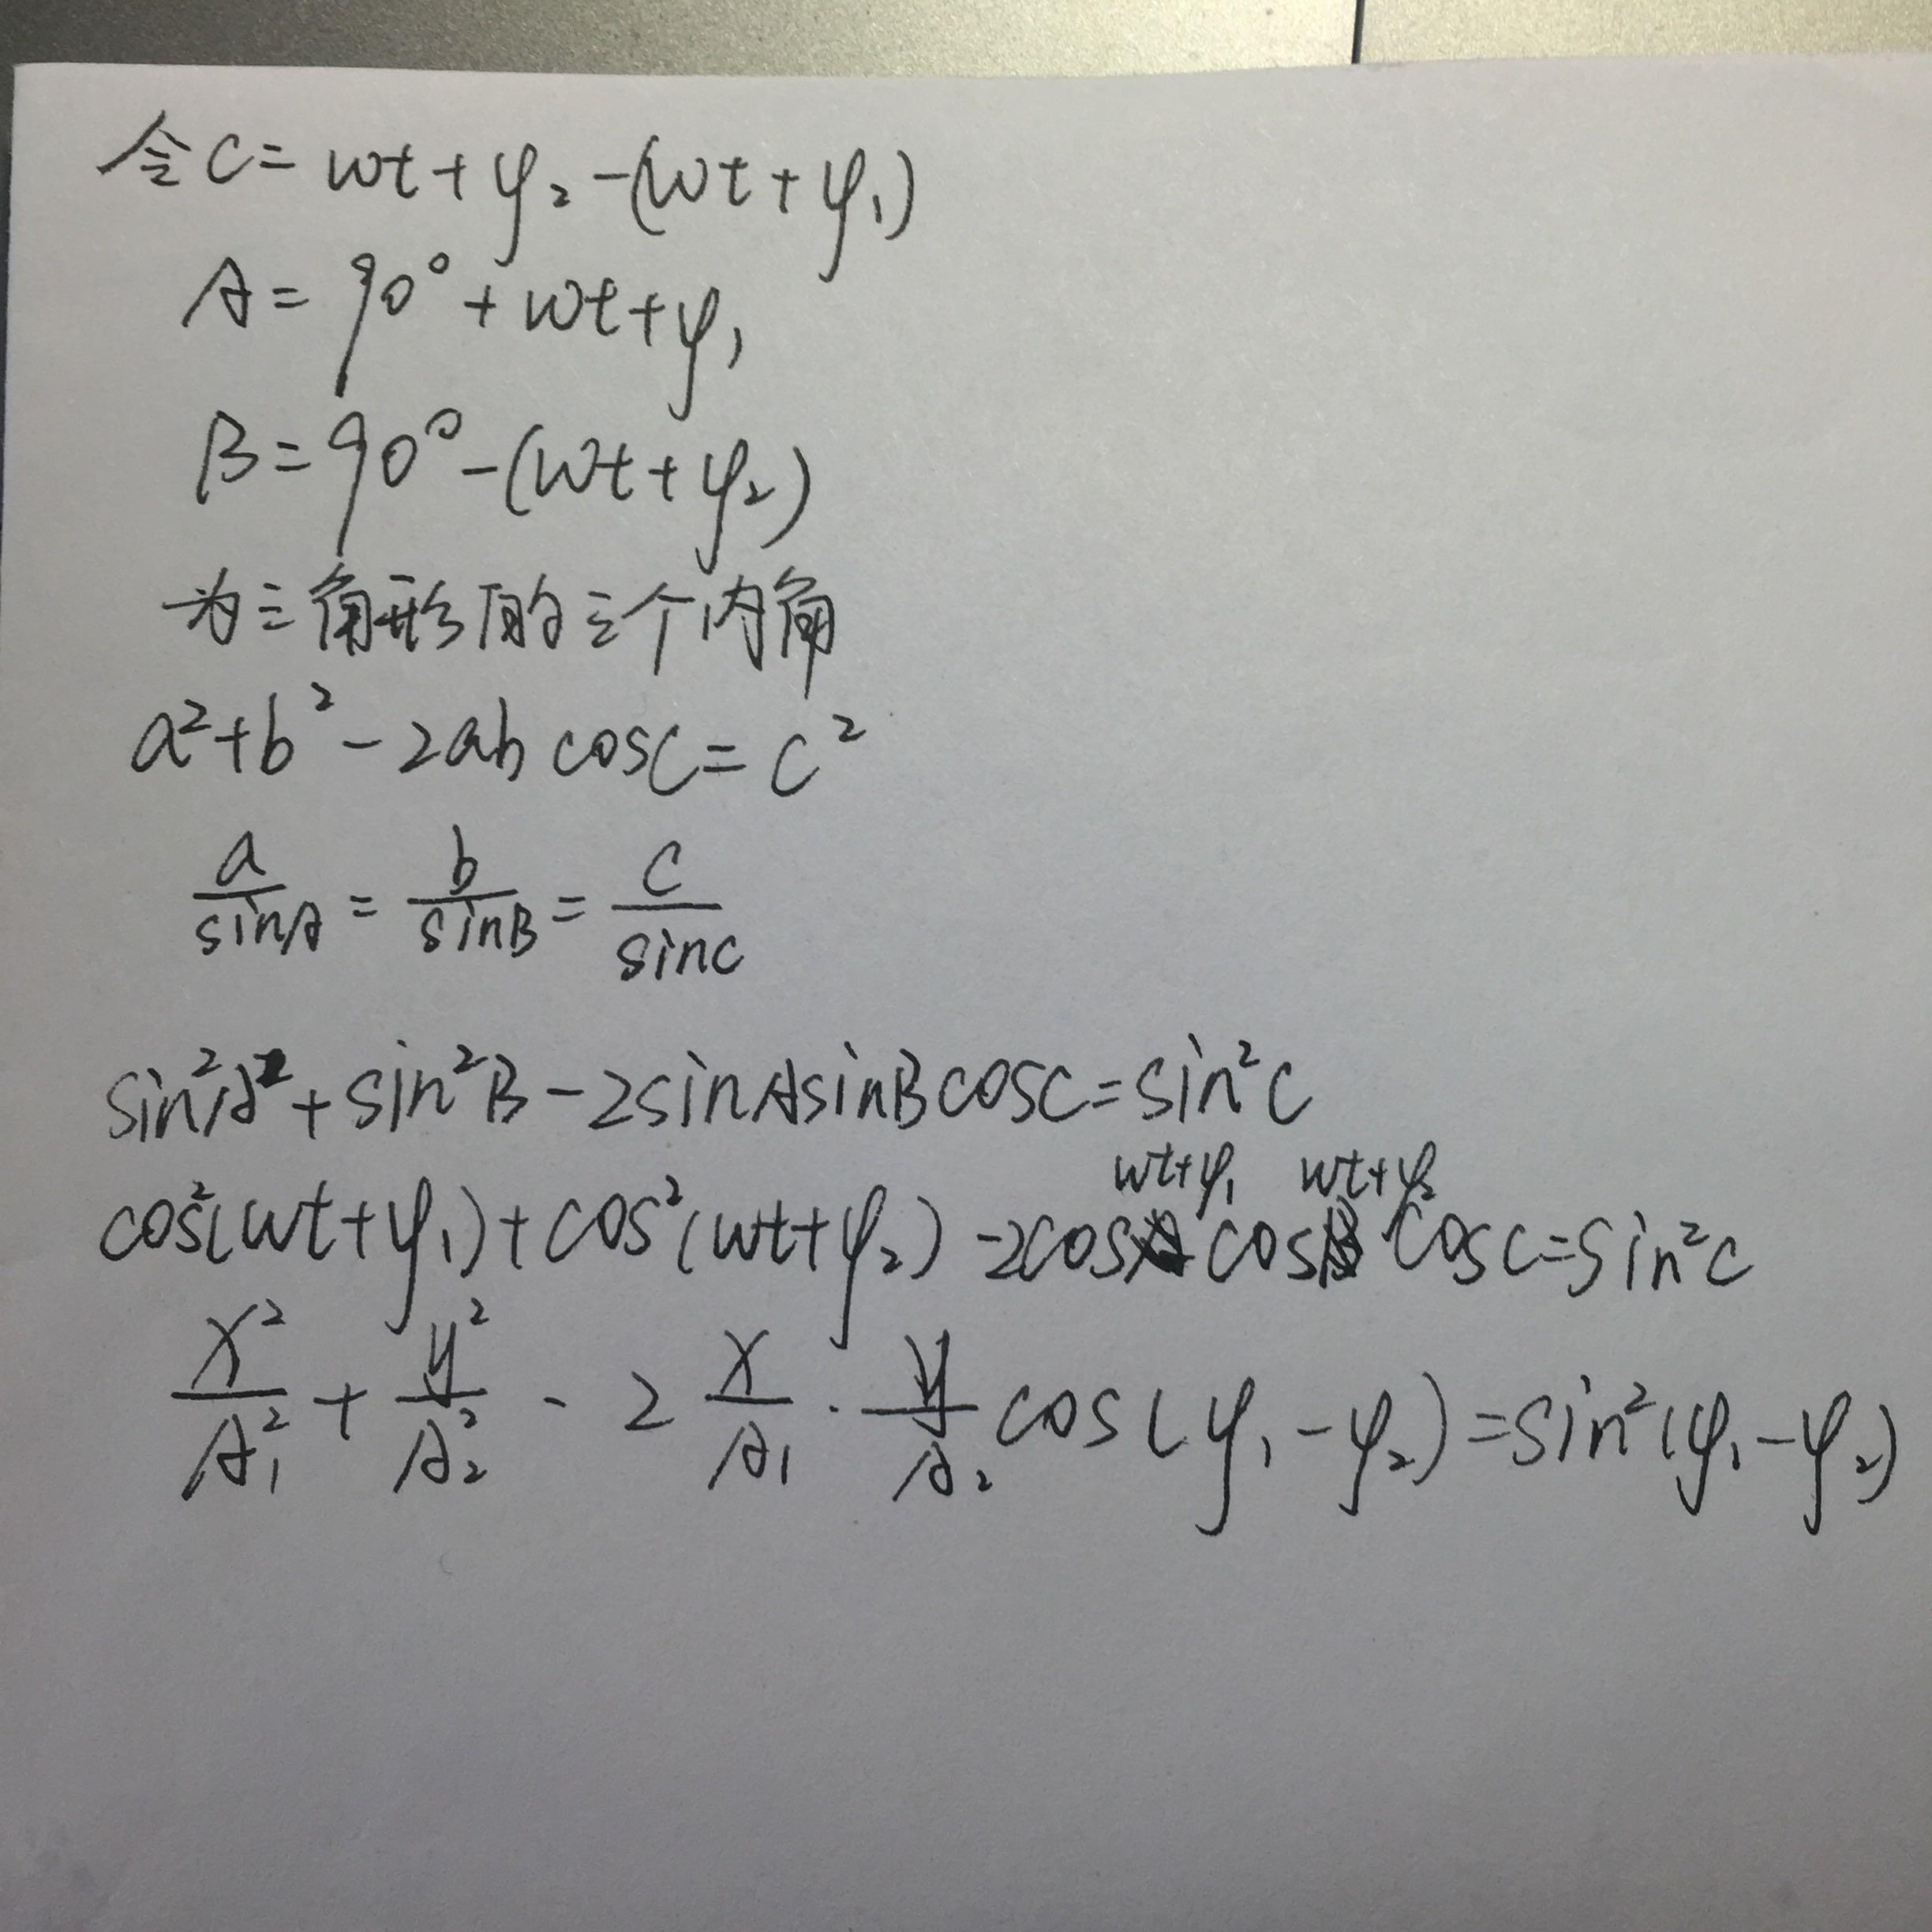 令C=wt+φ₂-(wt+φ₁)
A=90°+wt+φ₁
B=90°-(wt+φ₂)
为三角形的三个内角
a²+b²-2ab cosC=c²
a/sinA=b/sinB=c/sinC
sin²A+sin²B-2sinAsinBcosC=sin²C
cos²(wt+φ₁)+cos²(wt+φ₂)-2cos(wt+φ₁)cos(wt+φ₂)cosC=sin²C
x²/A₁²+y²/A₂²-2x/A₁·y/A₂cos(φ₁-φ₂)=sin²(φ₁-φ₂)